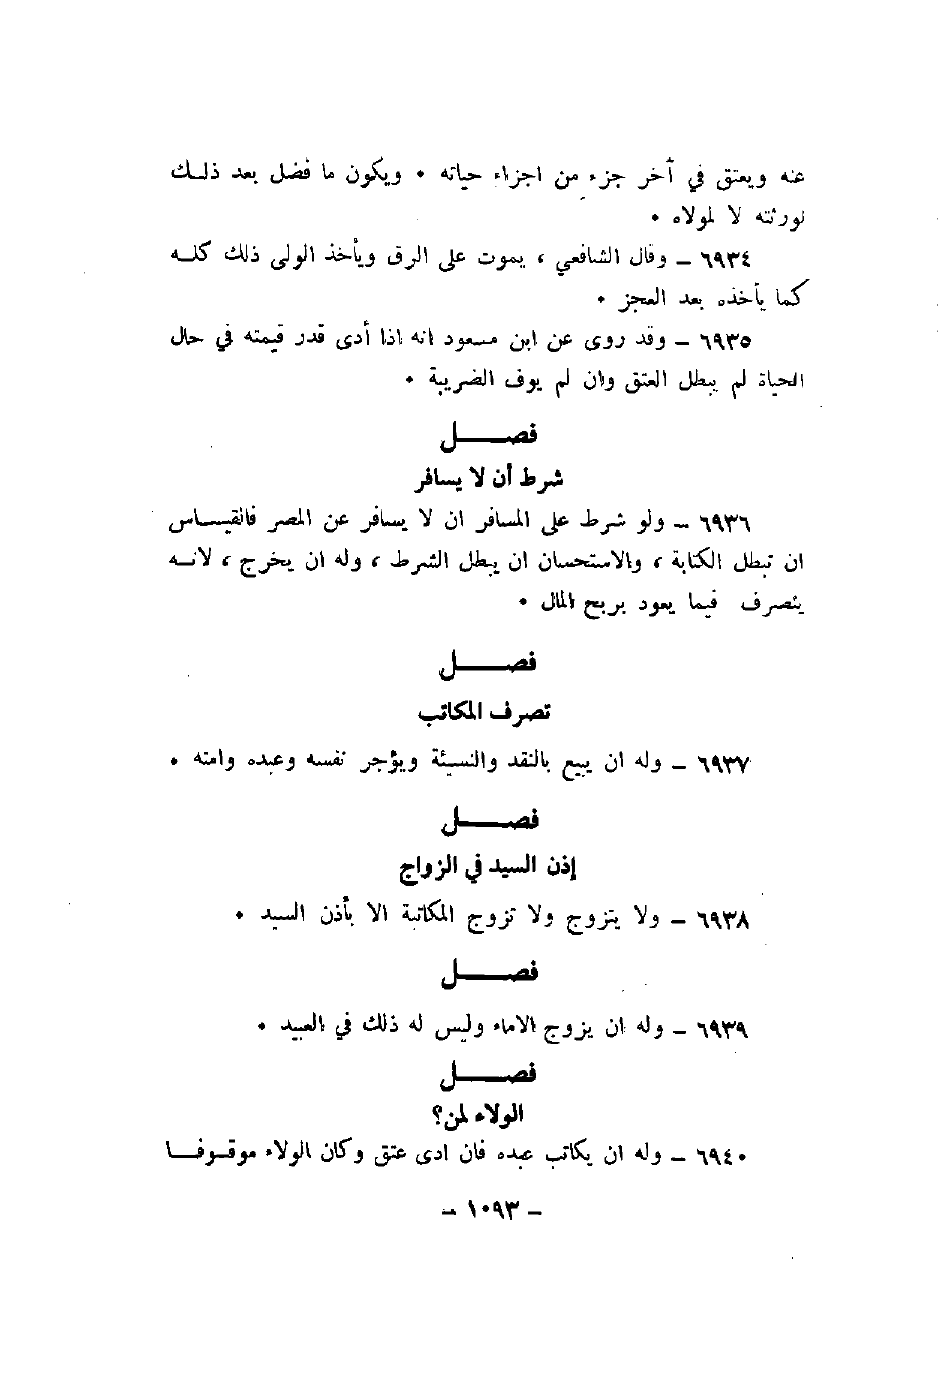 عنه ويعتق في آخر جزء من اجزاء حياته • ويكون ما فضل بعد ذلــك
لورثته لا لمولاه •
٦٩٣٤ ــ وقال الشافعي ، يموت على الرق ويأخذ الولى ذلك كلــه
كما يأخذه بعد العجز •
٦٩٣٥ ــ وقد روى عن ابن مسعود انه اذا أدى قدر قيمته في حال
الحياة لم يبطل العتق وان لم يوف الضريبة •
فصـــــل
شرط أن لا يسافر
٦٩٣٦ ــ ولو شرط على المسافر ان لا يسافر عن المصر فالقيــاس
ان تبطل الكتابة ، والاستحسان ان يبطل الشرط ، وله ان يخرج ، لانــه
يتصرف فيما يعود بربح المال •
فصـــــل
تصرف المكاتب
٦٩٣٧ ــ وله ان يبيع بالنقد والنسيئة ويؤجر نفسه وعبده وامته •
فصـــــل
إذن السيد في الزواج
٦٩٣٨ ــ ولا يتزوج ولا تزوج المكاتبة الا بأذن السيد •
فصـــــل
٦٩٣٩ ــ وله ان يزوج الاماء وليس له ذلك في العبيد •
فصـــــل
الولاء لمن؟
٦٩٤٠ ــ وله ان يكاتب عبده فان ادى عتق وكان الولاء موقــوفــا
ــ ١٠٩٣ ــ